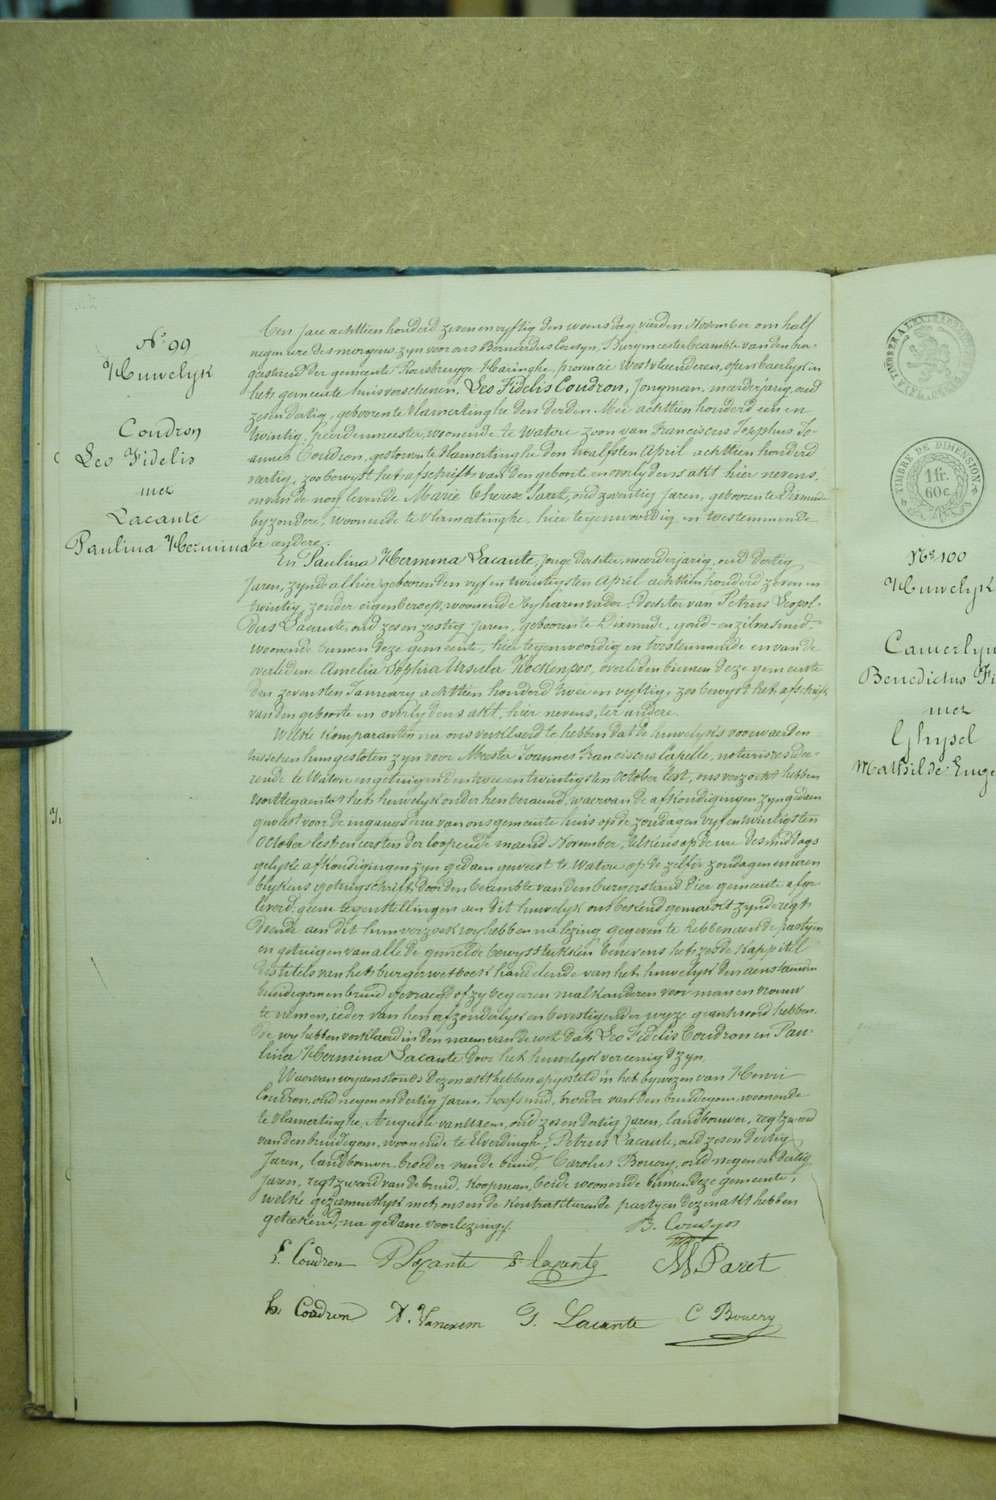 N° 99
Huwelyk
Coudron
Leo Fidelis
met
Lacante
Paulina Hermina
Een jare achttien honderd zeven en vyftig den woensdag vierden November om half
negen ure des morgens, zyn voor ons Bernardus Coustyn, Burgmeester beambte van den bur-
gerstand der gemeente Rousbrugge Haringhe, provincie Westvlaenderen, openbaerlyk in
het gemeente huis verschenen, Leo Fidelis Coudron, Jongman, meerderjarig, oud
zes en dertig, geboren te Vlamertinghe den derden Mei achttien honderd een en
twintig, peerdenmeester, woonende te Watou zoon van Franciscus Josephus Jo-
annes Coudron, gestorven te Vlamertinghe den twaelfsten April achttien honderd
veertig, zoo bewyst het afschrift van den geboorte en overlydens akt hier nevens,
en van de nog levende Marie Therese Paret, oud zeventig Jaren, geboren te Dixmude
byzondere, woonende te Vlamertinghe, hier tegenwoordig en toestemmende
ter andere.
En Paulina Hermina Lacante, jonge dochter, meerderjarig, oud dertig
Jaren, zynde alhier geboren den vyf en twintigsten April achttien honderd zeven en
twintig, zonder eigen beroep, woonende by haren vader, dochter van Petrus Leopol-
dus Lacante, oud zes en zestig Jaren, geboren te Dixmude, goud- en zilversmid
woonende binnen deze gemeente, hier tegenwoordig en toestemmende en van de
overledene Amelia Sophia Ursula Kockenpoo, overleden binnen deze gemeente
den zevensten January achttien honderd twee en vyftig, zoo bewyst het afschrift
van den geboorte en overlydens akt, hier nevens, ter andere.
Welke komparanten na ons verklaerd te hebben dat de huwelyks voorwaerden
tusschen hun gesloten zyn voor Meester Joannes Franciscus Capelle, notaris resider-
rende te Watou en getuigen den twee en twintigsten October lest, ons verzocht hebben
voorttegaen tot het huwelyk onder hen beraemd, waervan de afkondigingen zyn gedaen
geweest voor de ingangdeure van ons gemeente huis op de zondagen vyf en twintigsten
October lest en eersten der loopende maend November, telkens op de ure des middags
gelyke afkondigingen zyn gedaen geweest te Watou op de zelfde zondagen en uren
blykens getuigschrift door den beambte van den burgerstand dier gemeente afge-
leverd; geene tegenstellingen aen dit huwelyk ons bekend gemaekt zynde regt
doende aen dit hun verzoek wy hebben na lezing gegeven te hebben aen de partyen
en getuigen van alle de gemelde bewysstukken benevens het zesde kappittel
des titels van het burger wetboek handelende van het huwelyk den aenstaenden
bruidegom en bruid gevraegd of zy begeeren malkanderen voor man en vrouw
te nemen, ieder van hen afzonderlyk en bevestigender wyze geantwoord hebben-
de wy hebben verklaerd in den naem van de wet dat Leo Fidelis Coudron en Pau-
lina Hermina Lacante door het huwelyk vereenigd zyn
Waervan wy aenstonds dezen akt hebben opgesteld in het bywezen van Henri
Coudron, oud negen en dertig jaren, hoefsmid, broeder van den bruidegom, woonende
te Vlamertinghe, Auguste vanUxem, oud zes en dertig Jaren, landbouwer, regtzweer
van den bruidegom, woonende te Elverdinghe, Petrus Lacante, oud zes en dertig
Jaren, landbouwer, broeder van de bruid, Carolus Bouery, oud negen en dertig
Jaren, regtzweer van de bruid, koopman, beide woonende binnen deze gemeente,
welke gezamentlyk met ons en de kontrakterende partyen dezen akt hebben
geteekend, na gedane voorlezing.
B. Coustyn
L. Coudron P Lacante P Lacante M Paret
h. Coudron A. Vanexem P. Lacante C Bouery
TIMBRE DE DIMENSION.
1 fr.
60 c.
N° 100
Huwelyk
Camerlyn
Benedictus Fi
met
Ghysel
Mathilde Euge